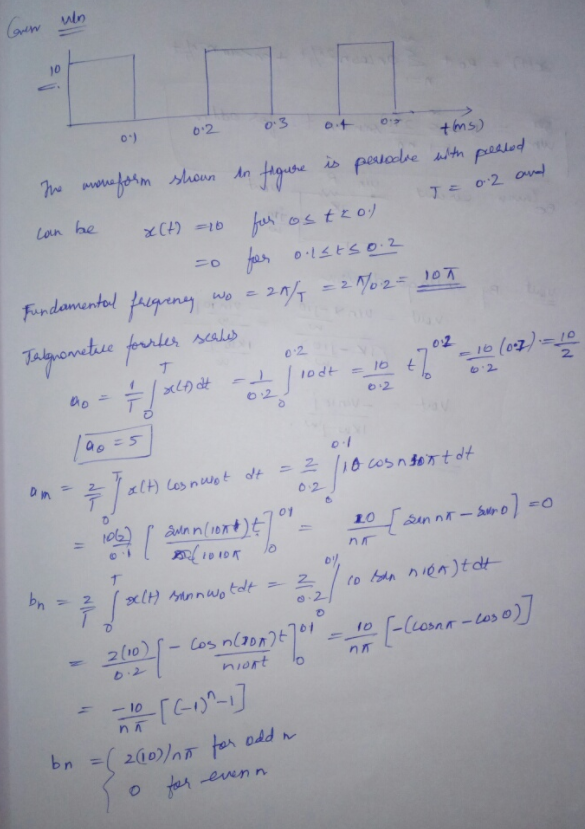 Given
10
0.1 0.2 0.3 0.4 t(ms)
The waveform shown in figure is periodic with period
T = 0.2 and
can be x(t) = 10 for 0 ≤ t < 0.1
= 0 for 0.1 ≤ t ≤ 0.2
Fundamental frequency ω0 = 2π/T = 2π/0.2 = 10π
Trignometric fourier series
a0 = 1/T ∫_0^T x(t) dt = 1/0.2 ∫_0^0.2 10 dt = 10/0.2 t]_0^0.2 = 10/0.2 (0.1) = 10/2
a0 = 5
an = 2/T ∫_0^T x(t) cos nω0t dt = 2/0.2 ∫_0^0.1 10 cos n10πt dt
= 10(2)/0.1 [ sin n(10π)t ]_0^01 = 10/nπ [sin nπ - sin 0] = 0
bn = 2/T ∫_0^T x(t) sin nω0t dt = 2/0.2 ∫_0^01 10 sin n10π)t dt
= 2(10)/0.2 [ - cos n(10π)t / n10πt ]_0^01 = 10/nπ [-(cos nπ - cos 0)]
= -10/nπ [(-1)^n - 1]
bn = { 2(10)/nπ for odd n
0 for even n